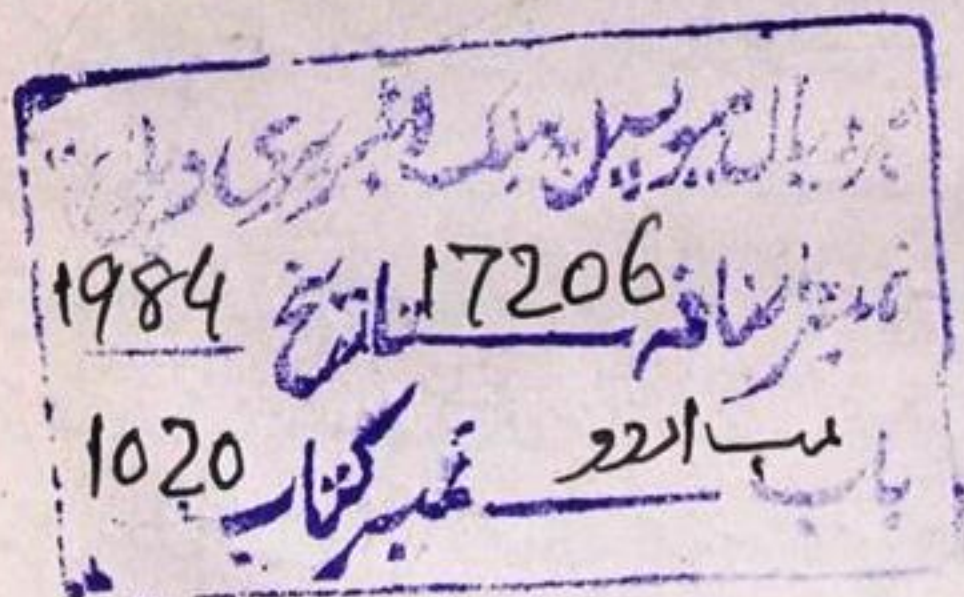 ہردیال میونسپل پبلک لائبریری دہلی
نمبر اضافہ 17206 تاریخ 1984
باب ادب اردو نمبر کتاب 1020